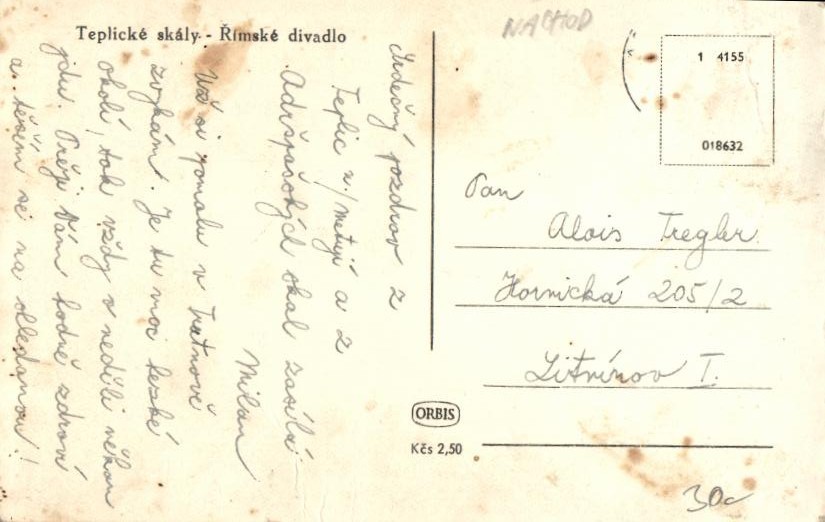 Teplické skály - Římské divadlo
NACHOD
1 4155
018632
Srdečný pozdrav z
Teplic n/Metují a z
Adršpašských skal zasílá
Milan
Už si pomalu v Trutnově
zvykám. Je tu moc hezké
okolí, tak vždy v neděli někam
jdu. Přeji Vám hodně zdraví
a těším se na shledanou!
Pan
Alois Tregler
Hornická 205/2
Litvínov I.
ORBIS
Kčs 2,50
30c